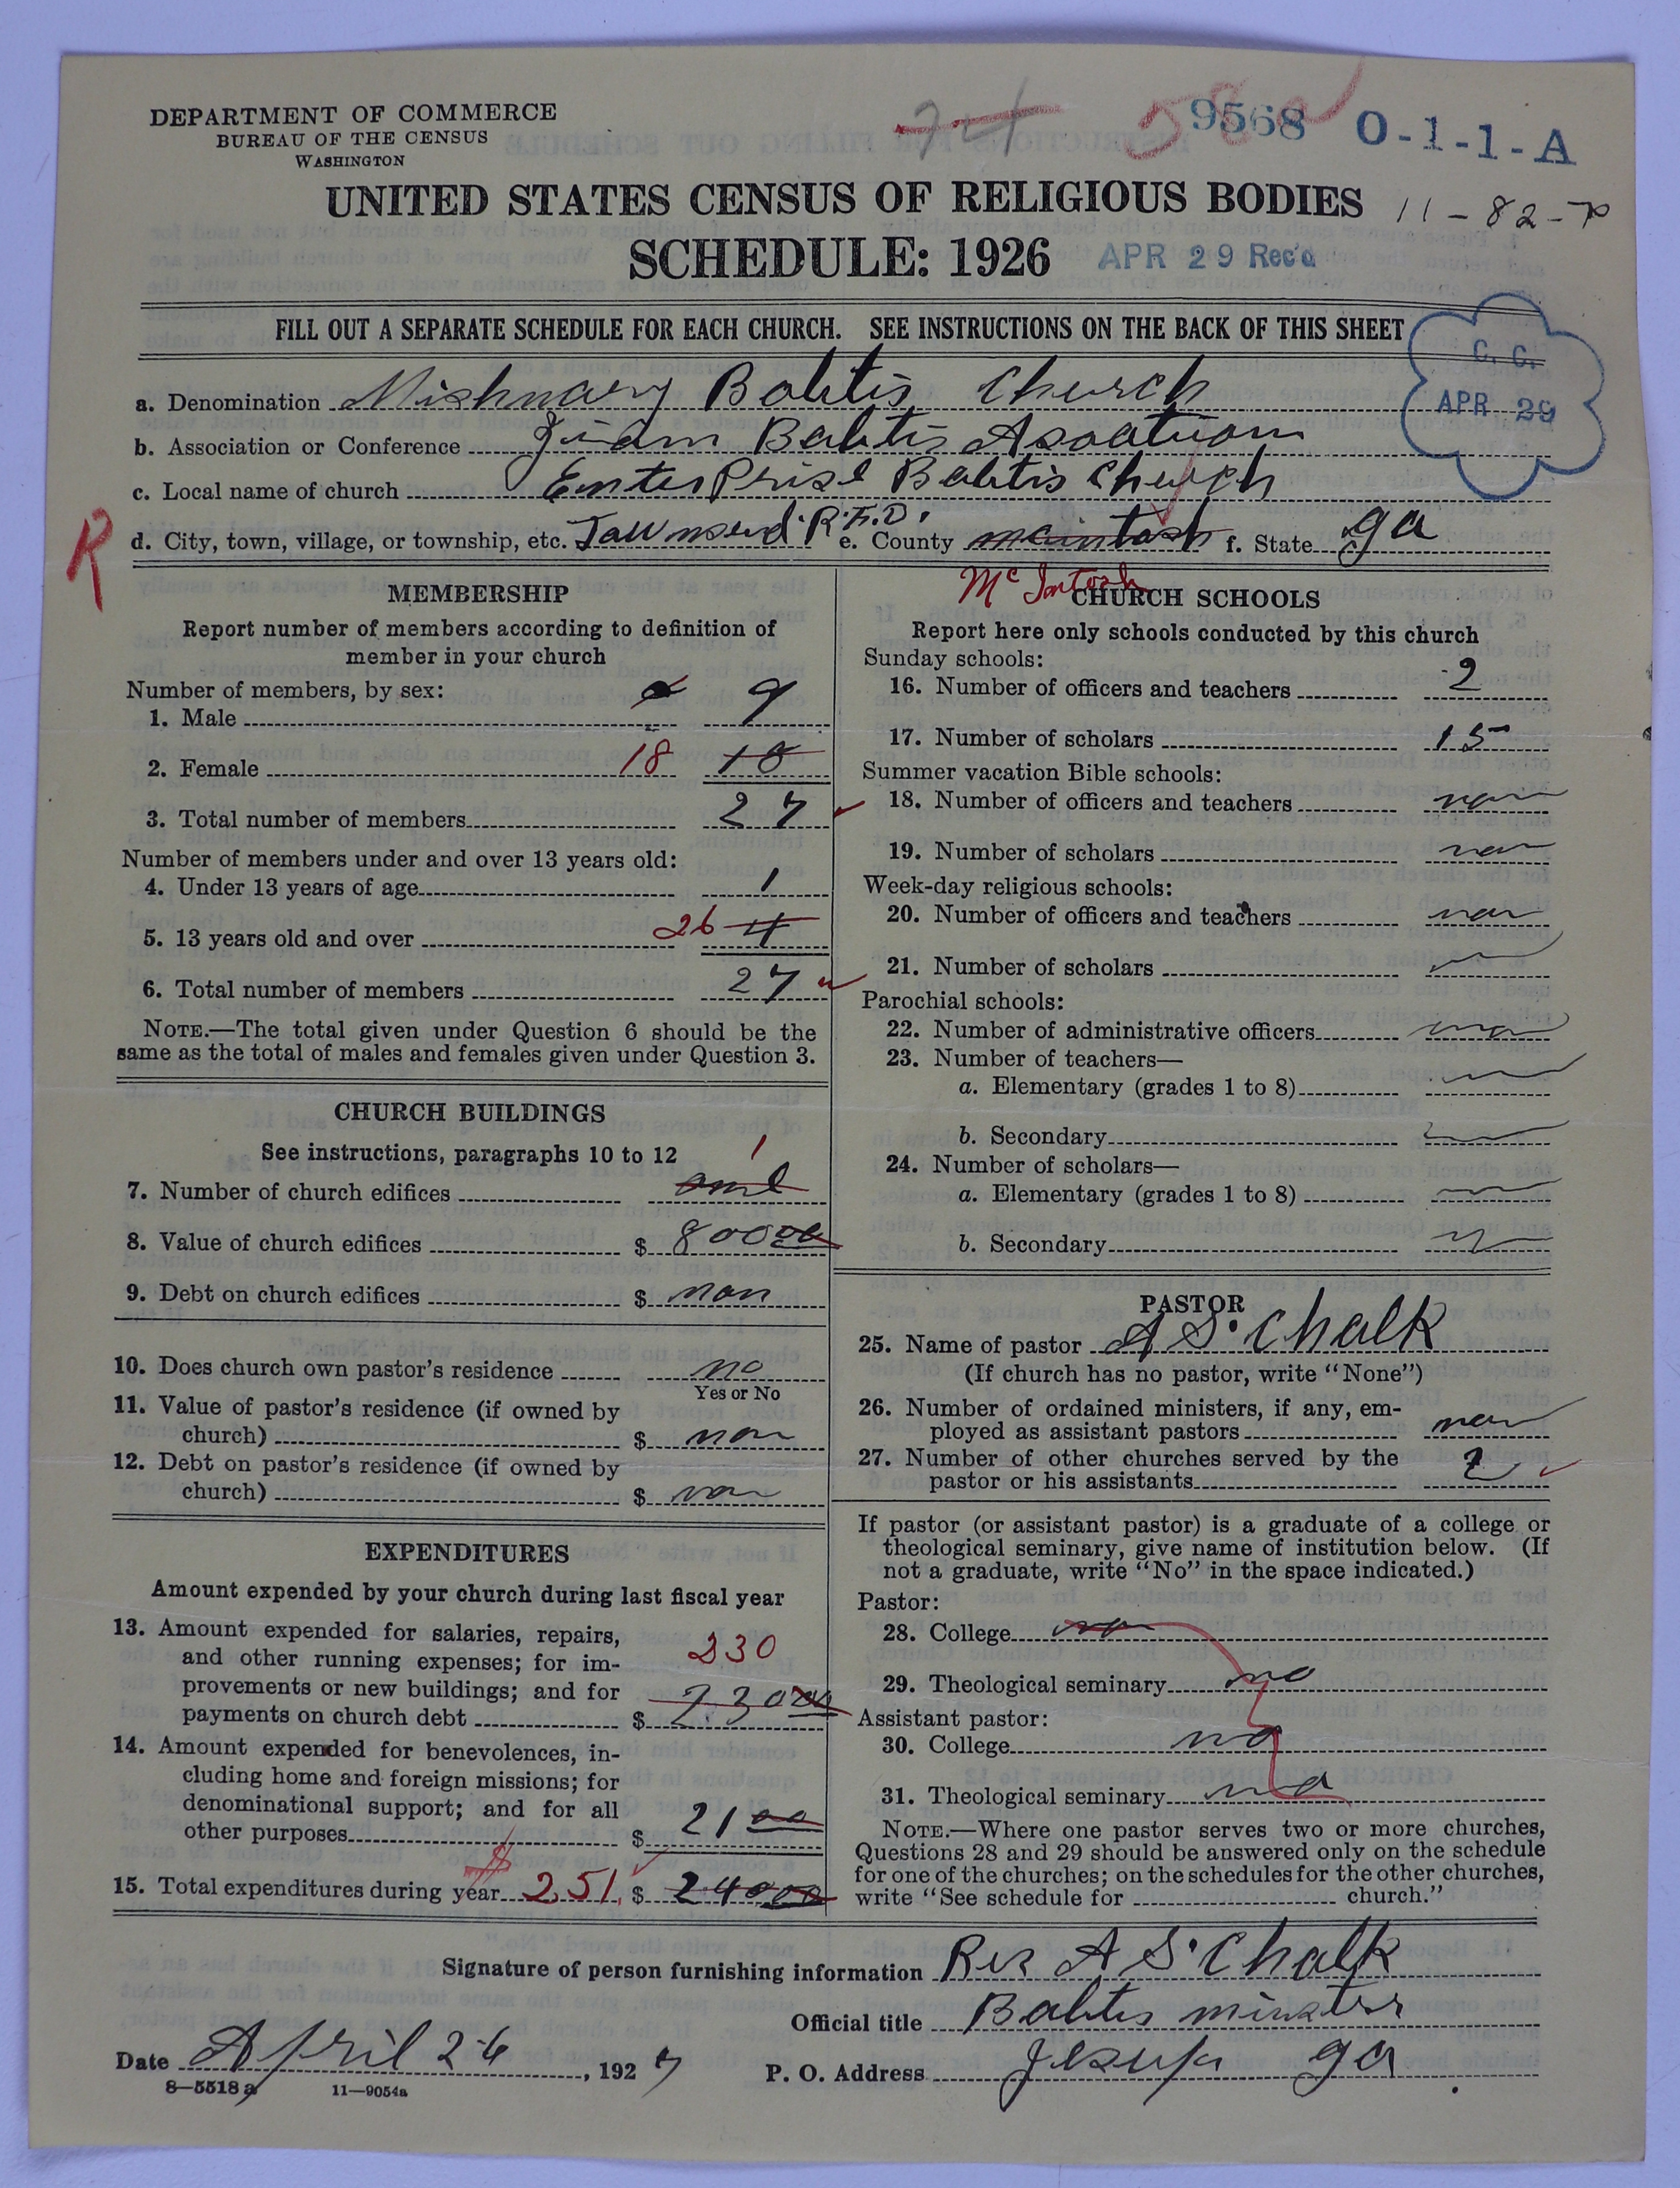 DEPARTMENT OF COMMERCE
BUREAU OF THE CENSUS
WASHINGTON
74 9568 O-1-1-A
UNITED STATES CENSUS OF RELIGIOUS BODIES 11-82-70
SCHEDULE: 1926 APR 29 Rec'd
FILL OUT A SEPARATE SCHEDULE FOR EACH CHURCH. SEE INSTRUCTIONS ON THE BACK OF THIS SHEET
C. C.
APR 29
a. Denomination Mishnary Babtis Church
b. Association or Conference Babtis Asoatuon
c. Local name of church EnterPrise Babtis Church
R d. City, town, village, or township, etc. Tawnsend R.F.D. e. County macintash f. State ga
McIntosh
MEMBERSHIP
Report number of members according to definition of
member in your church
Number of members, by sex:
1. Male 9
2. Female 18 18
3. Total number of members 27
Number of members under and over 13 years old:
4. Under 13 years of age 1
5. 13 years old and over 26 4
6. Total number of members 27
NOTE.—The total given under Question 6 should be the
same as the total of males and females given under Question 3.
CHURCH BUILDINGS
See instructions, paragraphs 10 to 12
1
7. Number of church edifices one
8. Value of church edifices $ 800 00
9. Debt on church edifices $ non
10. Does church own pastor's residence no
Yes or No
11. Value of pastor's residence (if owned by
church) $ non
12. Debt on pastor's residence (if owned by
church) $ non
EXPENDITURES
Amount expended by your church during last fiscal year
13. Amount expended for salaries, repairs,
and other running expenses; for im- 230
provements or new buildings; and for
payments on church debt $ 230 00
14. Amount expended for benevolences, in-
cluding home and foreign missions; for
denominational support; and for all
other purposes $ 21 00
15. Total expenditures during year $ 251 $ 240 00
CHURCH SCHOOLS
Report here only schools conducted by this church
Sunday schools:
16. Number of officers and teachers 2
17. Number of scholars 15
Summer vacation Bible schools:
18. Number of officers and teachers non
19. Number of scholars non
Week-day religious schools:
20. Number of officers and teachers non
21. Number of scholars
Parochial schools:
22. Number of administrative officers non
23. Number of teachers—
a. Elementary (grades 1 to 8)
b. Secondary
24. Number of scholars—
a. Elementary (grades 1 to 8)
b. Secondary
PASTOR
25. Name of pastor A S. Chalk
(If church has no pastor, write "None")
26. Number of ordained ministers, if any, em-
ployed as assistant pastors non
27. Number of other churches served by the
pastor or his assistants 2
If pastor (or assistant pastor) is a graduate of a college or
theological seminary, give name of institution below. (If
not a graduate, write "No" in the space indicated.)
Pastor:
28. College no
29. Theological seminary no
Assistant pastor:
30. College no
31. Theological seminary no
NOTE.—Where one pastor serves two or more churches,
Questions 28 and 29 should be answered only on the schedule
for one of the churches; on the schedules for the other churches,
write "See schedule for church."
Signature of person furnishing information Rev A S. Chalk
Official title Babtis minster
Date April 26, 1927 P. O. Address Jesup ga
8—5518a 11—9054a